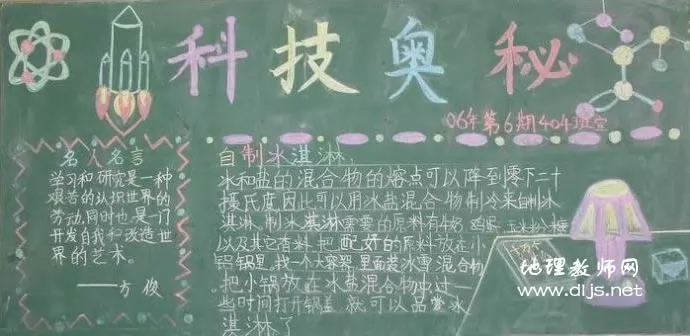 科技奥秘
06年第6期404班宣
名人名言
学习和研究是一种
艰苦的认识世界的
劳动,同时也是一门
开发自我和改造世
界的艺术。
——方俊
自制冰淇淋:
冰和盐的混合物的熔点可以降到零下二十
摄氏度因此可以用冰盐混合物制冷来自制冰
淇淋。制冰淇淋需要的原料有牛奶 鸡蛋 玉米粉 糖
以及其它香料.把配好的原料放在小
铝锅里,找一个大容器,里面装冰雪混合物
.把小锅放在冰盐混合物中,过一
些时间打开锅盖,就可以品尝冰
淇淋了
地理教师网
www.dljs.net